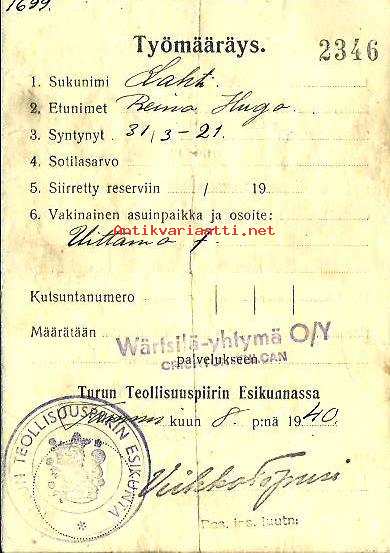 1699.
Työmääräys.
2346
1. Sukunimi Lahti
2. Etunimet Reino Hugo
3. Syntynyt 31/3-21.
4. Sotilasarvo
5. Siirretty reserviin / 19
6. Vakinainen asuinpaikka ja osoite:
Antikvariaatti.net
Uittamo 7.
Kutsuntanumero
Määrätään Wärtsilä-yhtymä O/Y
CRICHTON-VULCAN
palvelukseen.
Turun Teollisuuspiirin Esikunnassa
kuun 8 p:nä 1940.
TEOLLISUUSPIIRIN ESIKUNTA
Veikko
Res. ins. luutn: